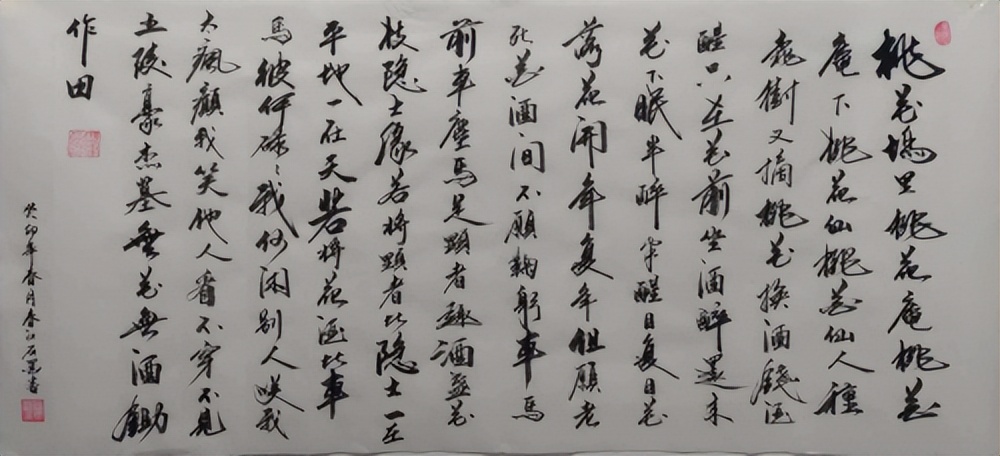 桃花塢里桃花庵桃花
庵下桃花仙桃花仙人種
桃樹又摘桃花換酒錢酒
醒只在花前坐酒醉還来
花下眠半醉半醒日复日花
落花開年复年但願老
死花酒间不願鞠躬車馬
前車塵馬足顯者趣酒盏花
枝隐士缘若将顯者比隐士一在
平地一在天若将花酒比車
馬彼何碌々我何闲别人咲我
太瘋顛我笑他人看不穿不見
五陵豪杰墓無花無酒鋤
作田
癸卯年春月春江